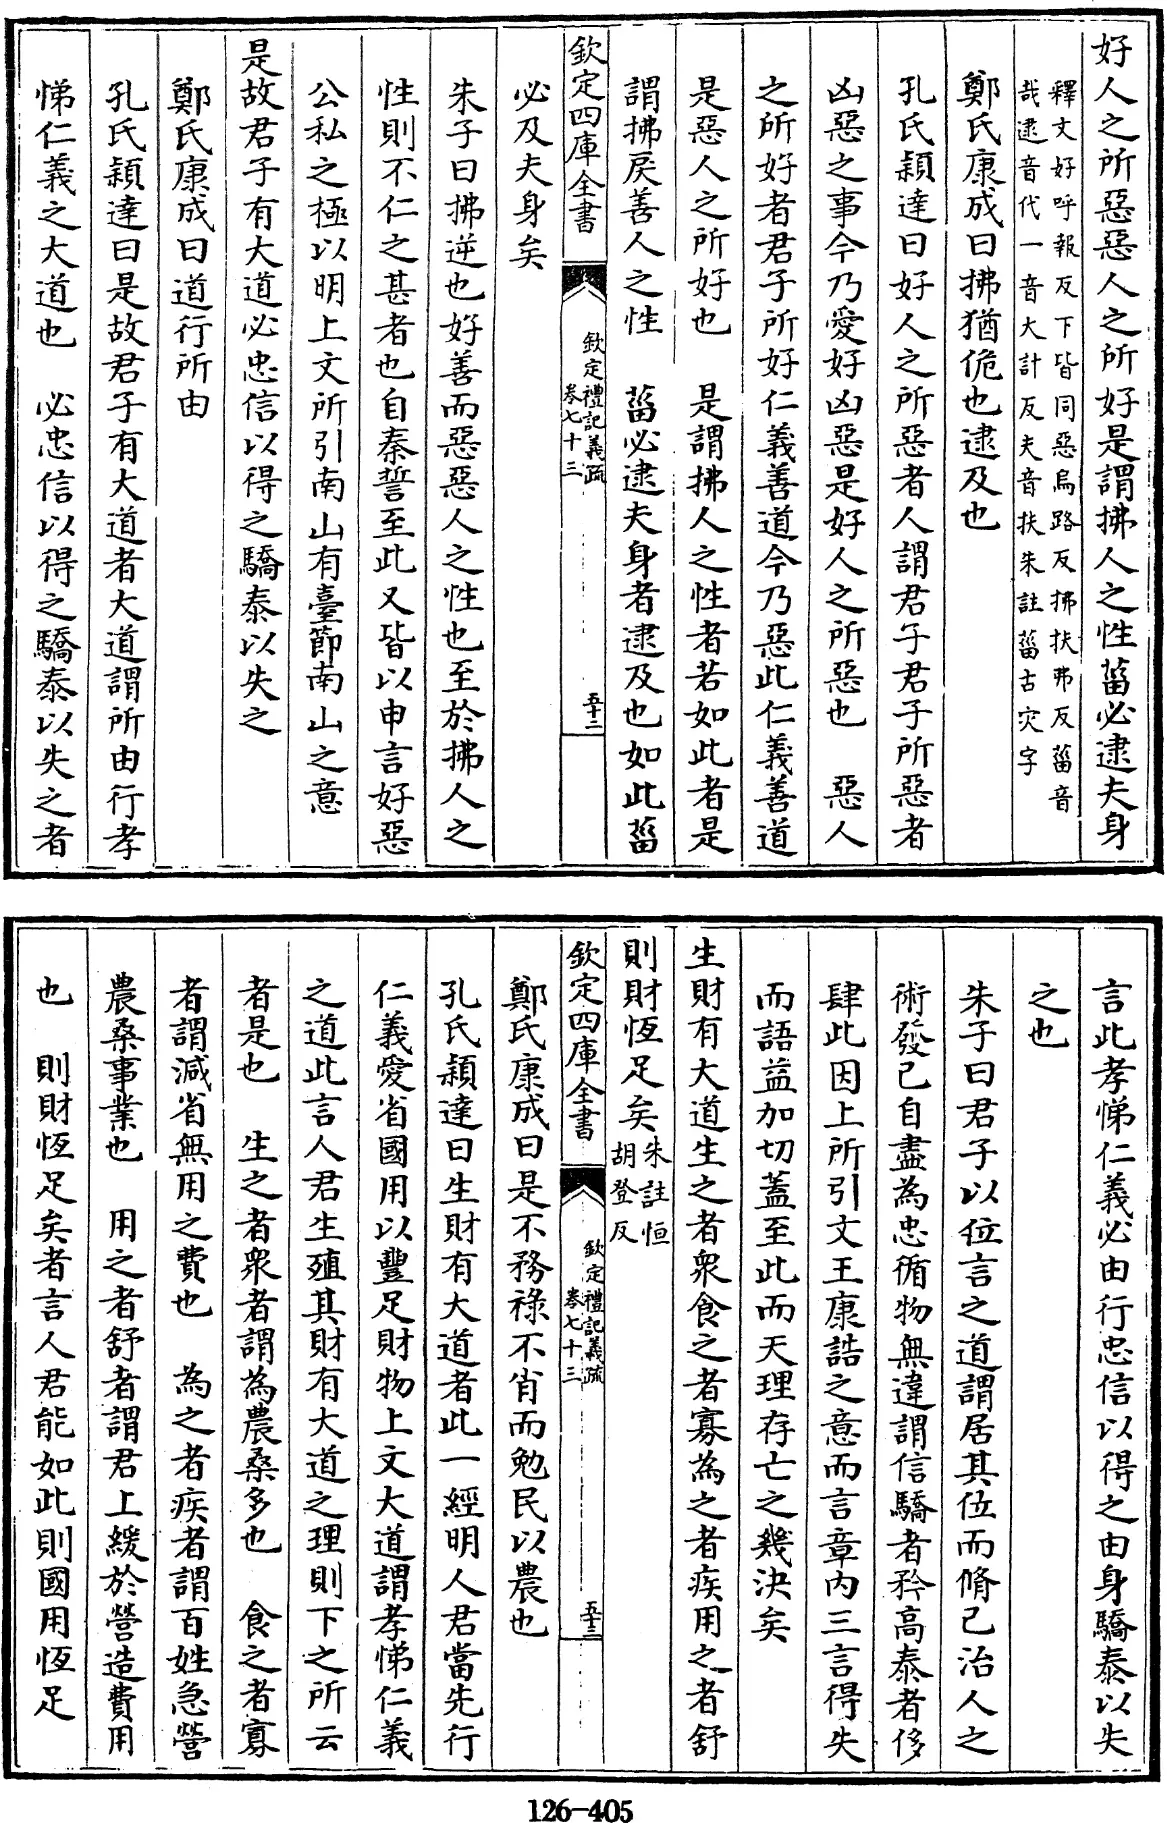 好人之所惡惡人之所好是謂拂人之性菑必逮夫身
釋文好呼報反下皆同惡烏路反拂扶弗反菑音
哉逮音代一音大計反夫音扶朱註菑古灾字
鄭氏康成曰拂猶佹也逮及也
孔氏穎達曰好人之所惡者人謂君子君子所惡者
凶惡之事今乃愛好凶惡是好人之所惡也 惡人
之所好者君子所好仁義善道今乃惡此仁義善道
是惡人之所好也 是謂拂人之性者若如此者是
謂拂戾善人之性 菑必逮夫身者逮及也如此菑
欽定四庫全書
欽定禮記義疏
卷七十三
五十二
必及夫身矣
朱子曰拂逆也好善而惡惡人之性也至於拂人之
性則不仁之甚者也自秦誓至此又皆以申言好惡
公私之極以明上文所引南山有臺節南山之意
是故君子有大道必忠信以得之驕泰以失之
鄭氏康成曰道行所由
孔氏穎達曰是故君子有大道者大道謂所由行孝
悌仁義之大道也 必忠信以得之驕泰以失之者
言此孝悌仁義必由行忠信以得之由身驕泰以失
之也
朱子曰君子以位言之道謂居其位而脩己治人之
術發己自盡為忠循物無違謂信驕者矜高泰者侈
肆此因上所引文王康誥之意而言章內三言得失
而語益加切蓋至此而天理存亡之幾決矣
生財有大道生之者衆食之者寡為之者疾用之者舒
則財恆足矣
朱註恒
胡登反
欽定四庫全書
欽定禮記義疏
卷七十三
五十三
鄭氏康成曰是不務祿不肖而勉民以農也
孔氏穎達曰生財有大道者此一經明人君當先行
仁義愛省國用以豐足財物上文大道謂孝悌仁義
之道此言人君生殖其財有大道之理則下之所云
者是也 生之者衆者謂為農桑多也 食之者寡
者謂減省無用之費也 為之者疾者謂百姓急營
農桑事業也 用之者舒者謂君上緩於營造費用
也 則財恆足矣者言人君能如此則國用恆足
126-405